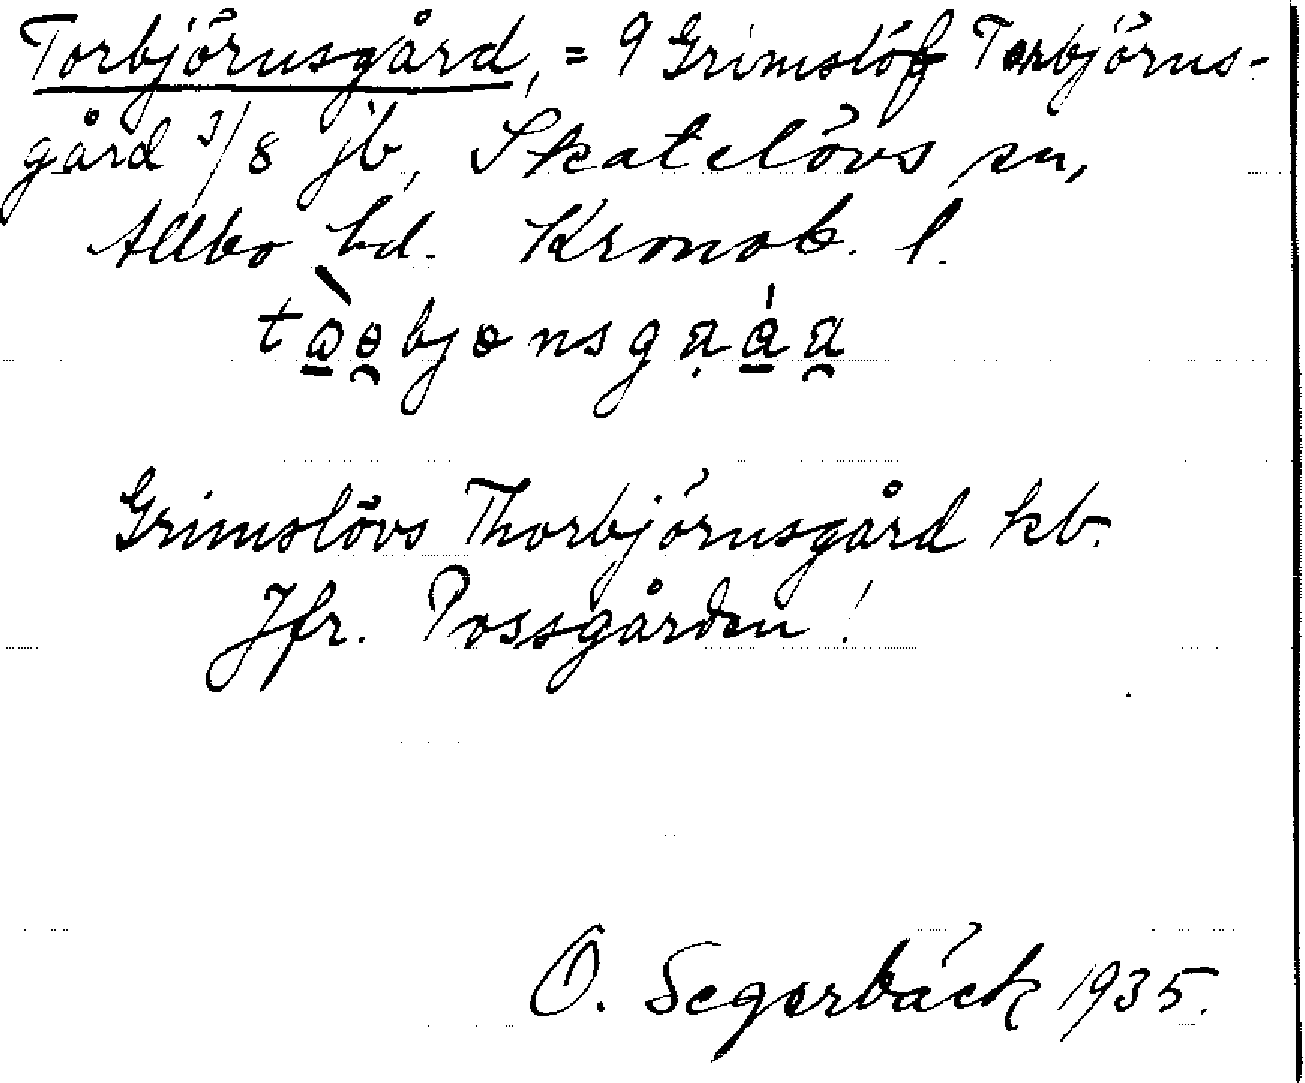 Torbjörnsgård, = 9 Grimslöf Torbjörns-
gård 3/8 jb, Skatelövs sn,
Allbo hd. Kronob. l.
Grimslövs Thorbjörnsgård kb.
Jfr. Possgården!
O. Segerbäck 1935.